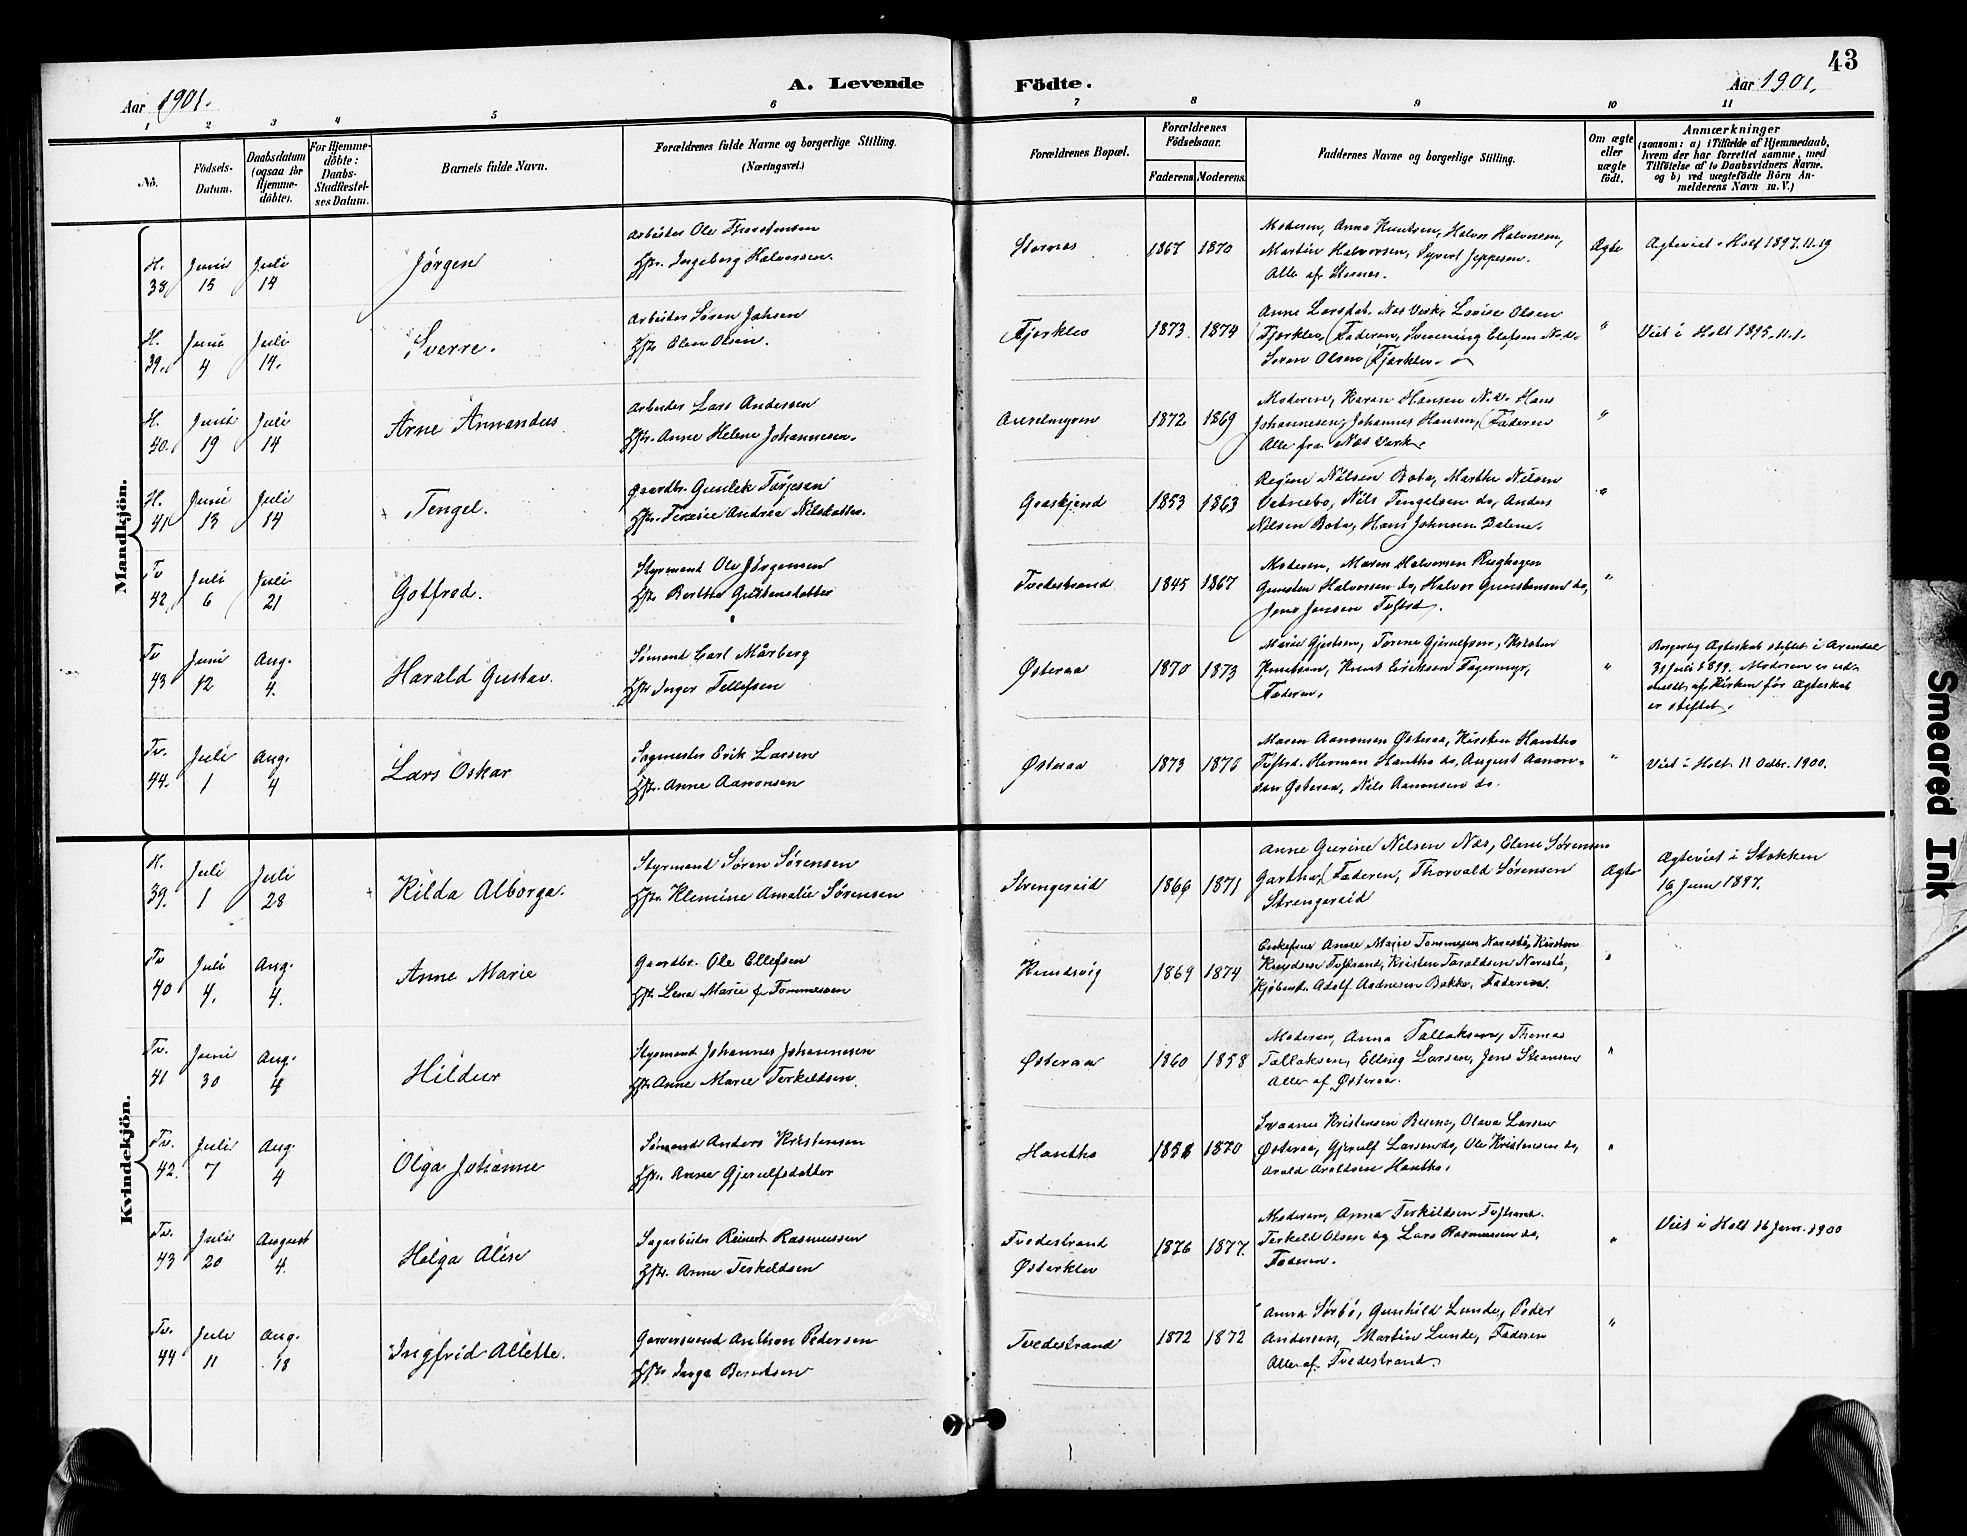 43
Aar 1901.
A. Levende Födte.
Aar 1901.
1 2 3 4 5 6 7 8 9 10 11
No.
Födsels-Datum.
Daabsdatum (ogsaa for Hjemme-döbte).
For Hjemme-döbte: Daabs-Stadfæstel-ses Datum.
Barnets fulde Navn.
Forældrenes fulde Navne og borgerlige Stilling.
(Næringsvei.)
Forældrenes Bopæl.
Forældrenes Födselsaar.
Faderens. Moderens.
Faddernes Navne og borgerlige Stilling.
Om ægte eller uægte födt.
Anmærkninger
(saasom: a) i Tilfælde af Hjemmedaab, hvem der har forrettet samme, med Tilföielse af to Daabsvidners Navne. og b) ved uægtefödte Börn An-melderens Navn m. V.)
Mandkjön.
H. 38, Juni 15 Juli 14 Jørgen
Arbeider Ole Thorstensen
Hstr. Ingeborg Halvorsen.
Stornes 1867 1870
Moderen, Anna Knutsen, Halvor Halvorsen,
Martin Halvorsen, Syvert Jeppesen.
Alle af Stornes.
Ægte
Ægteviet i Holt 1897.11.19
H. 39. Juni 4 Juli 14. Sverre.
Arbeider Søren Jahsen
Hstr Elen Olsen.
Fjærklev 1873 1874
Anne Larsdat. Næs Værk, Lovise Olsen
Fjærklev, Faderen, Svenning Olafsen N.v.
Søren Olsen Fjærklev.
"
Viet i Holt 1895.11.1.
H. 40. Juni 19 Juli 14 Arne Amandus
Arbeider Lars Andersen
Hstr. Anne Helene Johannesen.
1872 1869
Moderen, Karen Hansen N.v. Hans
Johannesen, Johannes Hansen, Faderen
Alle fra Næs Værk.
"
H. 41 Juni 13 Juli 14 Tengel.
Gaardbr. Gunlek Tarjesen
Hstr. Terese Andrea Nilsdatter.
Graskjend 1853 1863
Regine Nilsen Boba, Marthe Nilsen
Vatnebo, Nils Tengelsen do, Anders
Nilsen Boba, Hans Johnsen Dalene.
"
Tv 42, Juli 6 Juli 21 Gotfred.
Styrmand Ole Jørgensen
Hstr Berthe Gustensdatter
Tvedestrand 1845 1867
Moderen, Maren Halvorsen Rughagen
Gunsten Halvorsen do, Halvor Gunstensen do,
Jens Jensen Tvstrd.
"
Tv 43 Juni 12 Aug. 4. Harald Gustav.
Sømand Carl Mårberg
Hstr Inger Tellefsen
Østeraa 1870 1873
Marie Gjertsen, Torene Gjerulfsen, Kristen
Knutsen, Knut Eriksen Fagermyr,
Faderen.
"
Borgerlig Ægteskab stiftet i Arendal
31 juli 1899. Moderen er ud-
meldt af Kirken før Ægteskab
er stiftet.
Tv. 44. Juli 1 Aug. 4 Lars Oskar
Sagmester Erik Larsen
Hstr. Anne Aanonsen
Østeraa 1873 1876
Maren Aanonsen Østeraa, Kirsten Hantho
Tvstrd. Herman Hantho do, August Aanon-
sen Østeraa, Nils Aanonsen do.
"
Viet i Holt 11 Octbr. 1900.
Kvindekjön.
H. 39. Juli 1 Juli 28 Kilda Alborga.
Styrmand Søren Sørensen
Hstr. Klemine Amalie Sørensen
Strengereid 1866 1871
Anne Gurine Nilsen Næs, Elene Sørensen
Gartha, Faderen, Thorvald Sørensen
Strengereid
Ægte
Ægteviet i Stokken
16 Juni 1897.
Tv 40 Juli 4. Aug. 4. Anne Marie
Gaardbr. Ole Ellefsen
Hstr. Lena Marie f. Tommesen
Knudsvig 1869 1874
Enkefrue Anne Marie Tommesen Narestø, Kirsten
Knudsen Tvstrand, Kristen Taraldsen Narestø,
Kjøbmd. Adolf Aadnesen Bakke, Faderen.
"
Tv. 41 Juni 30 Aug. 4 Hildur
Styrmand Johannes Johannesen
Hstr Anne Marie Terkildsen.
Østeraa 1860 1858
Moderen, Anna Tallaksen, Thomas
Tallaksen, Elling Larsen, Jens Steansen
Alle af Østeraa.
"
Tv. 42. Juli 7 Aug 4 Olga Johanne
Sømand Anders Kristensen
Hstr. Anne Gjerulfsdatter
Hantho 1858 1870
Svanne Kristensen Buene, Olava Larsen
Østeraa, Gjerulf Larsen do, Ole Kristensen do,
Arald Araldsen Hantho.
"
Tv. 43 Juli 20 August 4. Helga Alise
Sagarbeider Reinert Rasmussen
Hstr. Anne Terkildsen
Tvedestrand
Østerklev
1876 1877.
Moderen, Anna Terkildsen Tvstrand.
Terkeld Olsen og Lars Rasmussen do,
Faderen.
"
Viet i Holt 26 Jan. 1900
Tv. 44 Juli 11 Aug. 18 Ingfrid Alette.
Garversvend Anthon Pedersen
Hstr Inga Berntsen
Tvedestrand 1872 1872
Anna Sørbø, Gunhild Lunde, Peder
Andersen, Martin Lunde, Faderen
Alle af Tvedestrand.
"
Smeared Ink